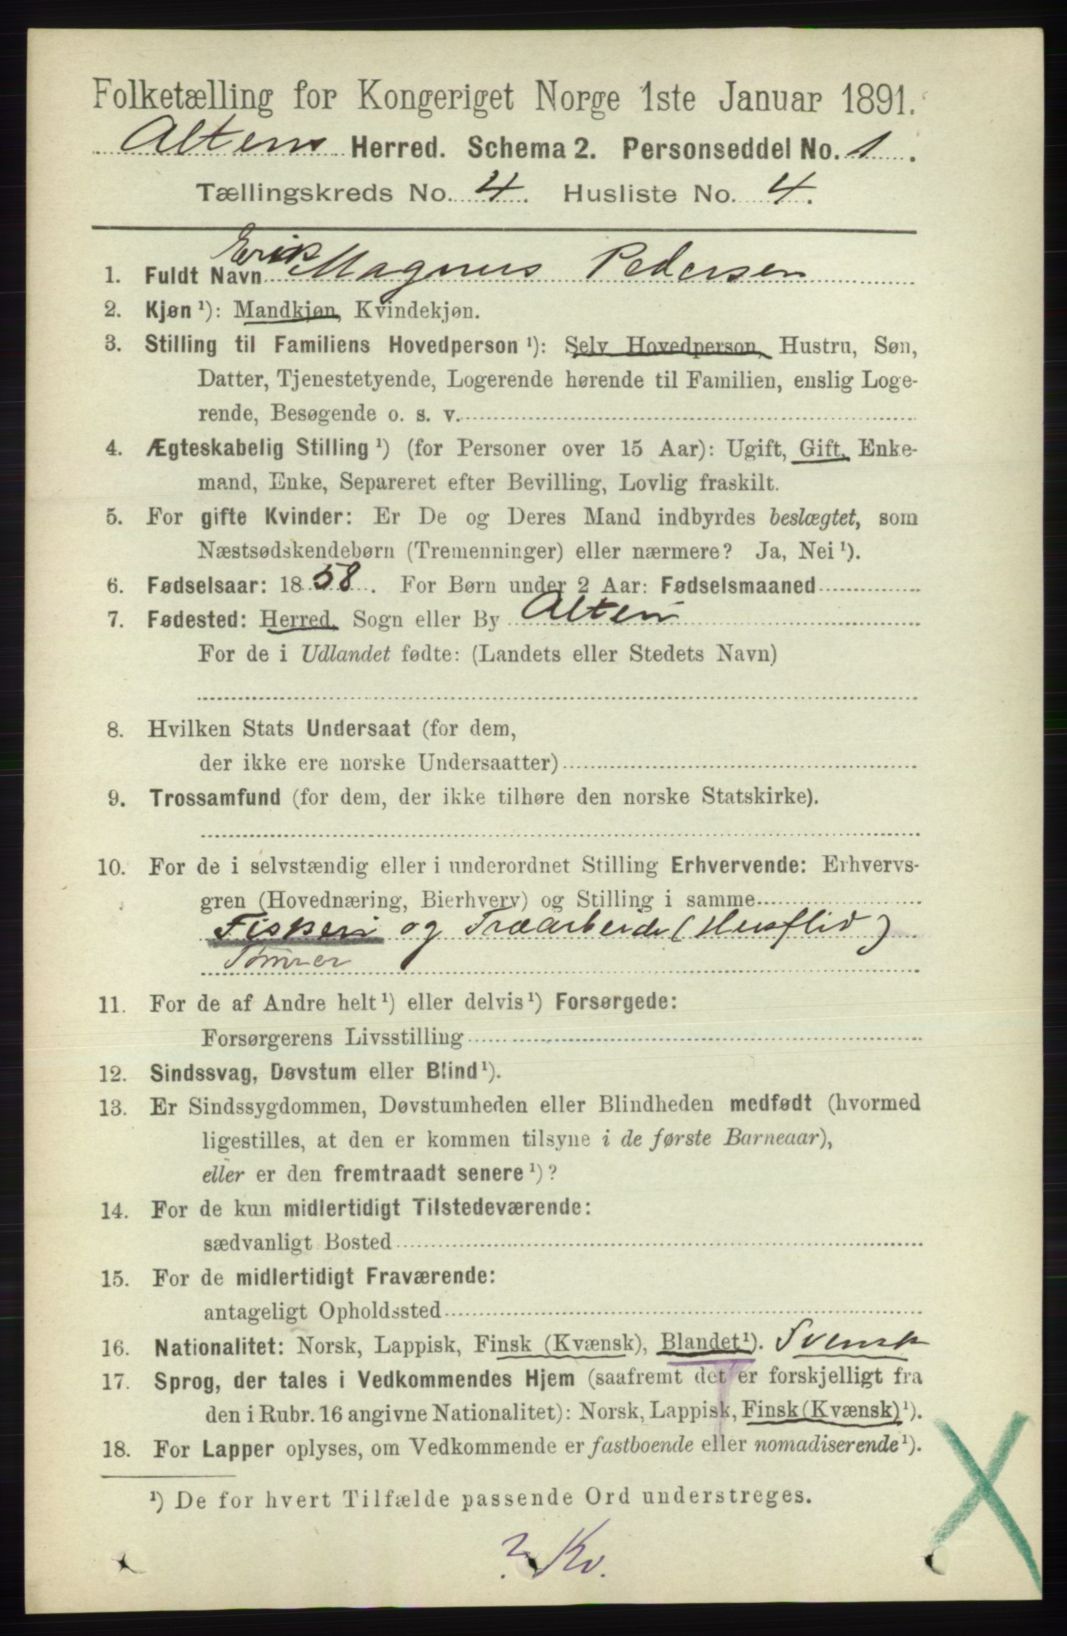 Folketælling for Kongeriget Norge 1ste Januar 1891.
Altens Herred. Schema 2. Personseddel No. 1.
Tællingskreds No. 4. Husliste No. 4.
Erik
1. Fuldt Navn Magnus Pedersen
2. Kjøn ¹): Mandkjøn, Kvindekjøn.
3. Stilling til Familiens Hovedperson ¹): Selv Hovedperson, Hustru, Søn,
Datter, Tjenestetyende, Logerende hørende til Familien, enslig Loge-
rende, Besøgende o. s. v.
4. Ægteskabelig Stilling ¹) (for Personer over 15 Aar): Ugift, Gift, Enke-
mand, Enke, Separeret efter Bevilling, Lovlig fraskilt.
5. For gifte Kvinder: Er De og Deres Mand indbyrdes beslægtet, som
Næstsødskendebørn (Tremenninger) eller nærmere? Ja, Nei ¹).
6. Fødselsaar: 1858. For Børn under 2 Aar: Fødselsmaaned
7. Fødested: Herred, Sogn eller By Alten
For de i Udlandet fødte: (Landets eller Stedets Navn)
8. Hvilken Stats Undersaat (for dem,
der ikke ere norske Undersaatter)
9. Trossamfund (for dem, der ikke tilhøre den norske Statskirke).
10. For de i selvstændig eller i underordnet Stilling Erhvervende: Erhvervs-
gren (Hovednæring, Bierhverv) og Stilling i samme
Fiskeri og Træarbeide (Husflid)
11. For de af Andre helt ¹) eller delvis ¹) Forsørgede:
Forsørgerens Livsstilling
12. Sindssvag, Døvstum eller Blind ¹).
13. Er Sindssygdommen, Døvstumheden eller Blindheden medfødt (hvormed
ligestilles, at den er kommen tilsyne i de første Barneaar),
eller er den fremtraadt senere ¹)?
14. For de kun midlertidigt Tilstedeværende:
sædvanligt Bosted
15. For de midlertidigt Fraværende:
antageligt Opholdssted
16. Nationalitet: Norsk, Lappisk, Finsk (Kvænsk), Blandet ¹). Svensk
17. Sprog, der tales i Vedkommendes Hjem (saafremt det er forskjelligt fra
den i Rubr. 16 angivne Nationalitet): Norsk, Lappisk, Finsk (Kvænsk) ¹).
18. For Lapper oplyses, om Vedkommende er fastboende eller nomadiserende ¹).
¹) De for hvert Tilfælde passende Ord understreges.
? Kv.